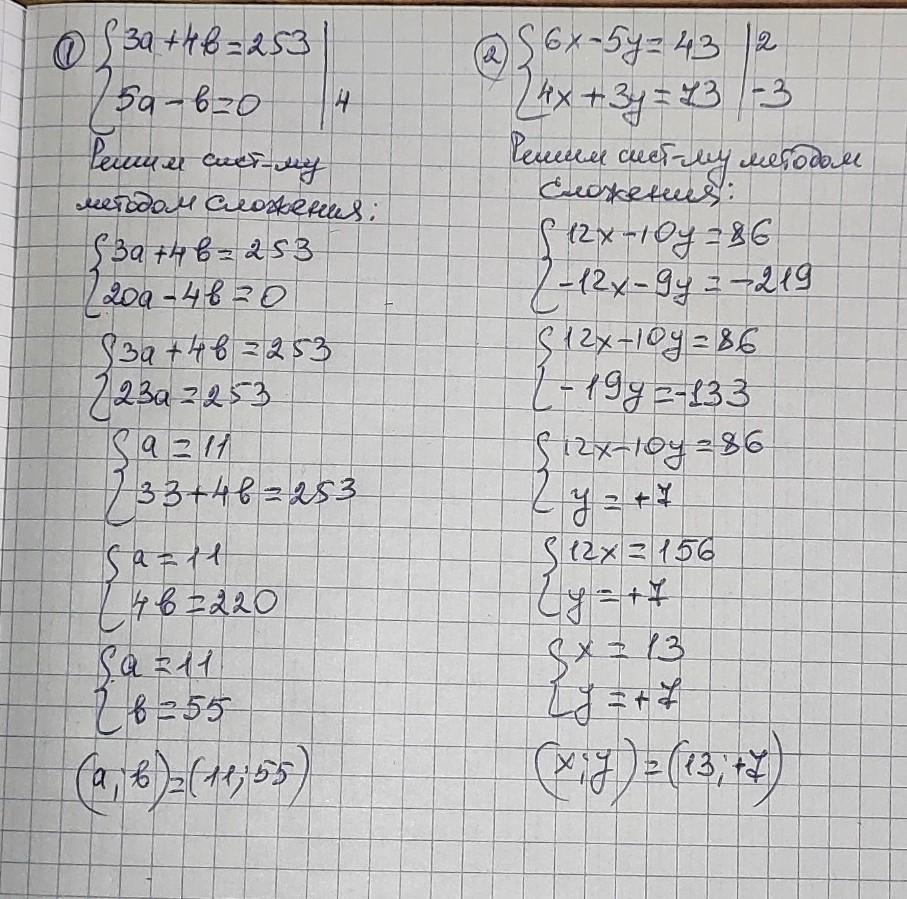 ① {3a+4b=253 |
{5a-b=0 | 4
Решим сист-му
методом сложения:
{3a+4b=253
{20a-4b=0
{3a+4b=253
{23a=253
{a=11
{33+4b=253
{a=11
{4b=220
{a=11
{b=55
(a;b)=(11;55)
② {6x-5y=43 | 2
{4x+3y=73 | -3
Решим сист-му методом
сложения:
{12x-10y=86
{-12x-9y=-219
{12x-10y=86
{-19y=-133
{12x-10y=86
{y=+7
{12x=156
{y=+7
{x=13
{y=+7
(x;y)=(13;+7)